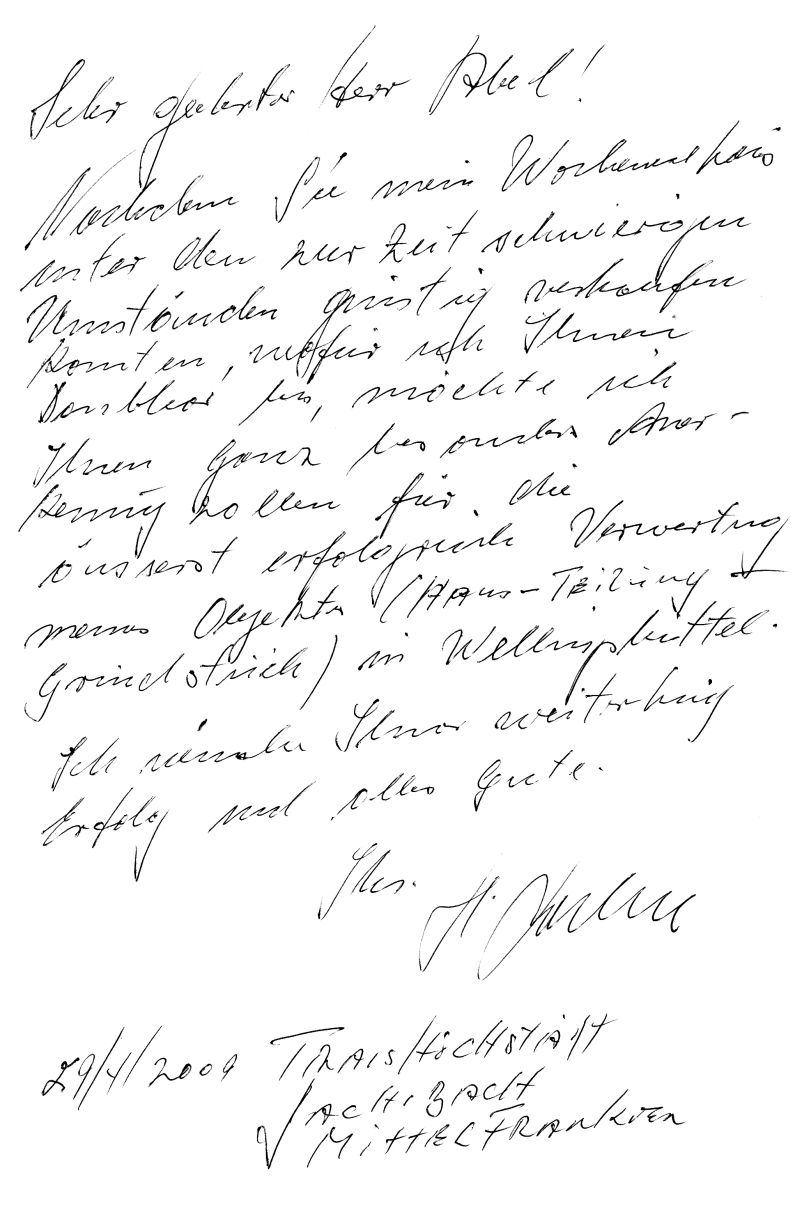 Sehr geehrter Herr Abel!
Nachdem Sie mein Wochenendhaus
unter den zur Zeit schwierigen
Umständen günstig verkaufen
konnten, wofür ich Ihnen
Dankbar bin, möchte ich
Ihnen ganz besonders Aner-
kennung zollen für die
äusserst erfolgreiche Verwertung
meines Objektes (Haus-Teilung +
Grundstück) in Wellingsbüttel.
Ich wünsche Ihnen weiterhin
Erfolg und alles Gute.
Ihr. H.
29/4/2009
BACH
MITTELFRANKEN